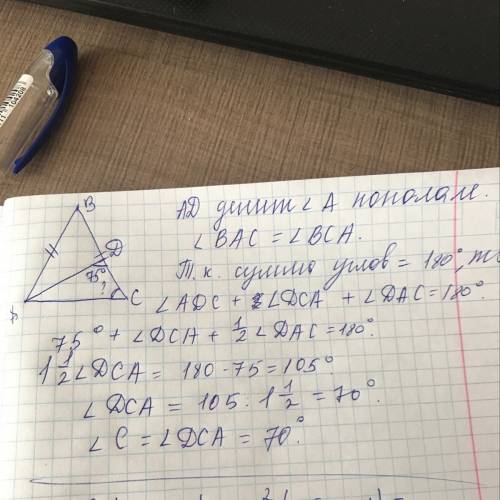 B
AD делит ∠A пополам.
∠BAC = ∠BCA.
D
75°
?
A
C
Т.к. сумма углов = 180°, то
∠ADC + ∠DCA + ∠DAC = 180°.
75° + ∠DCA + 1/2 ∠DAC = 180°.
1 1/2 ∠DCA = 180 - 75 = 105°
∠DCA = 105 : 1 1/2 = 70°.
∠C = ∠DCA = 70°.